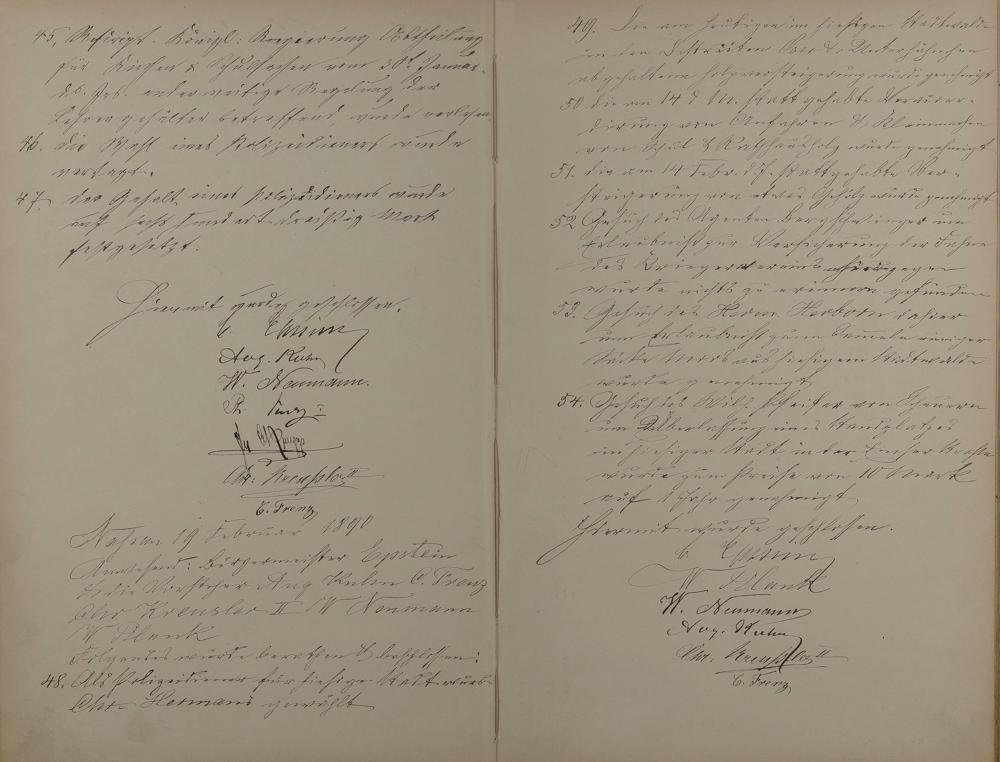 45, Rescript Königl: Regierung Abtheilung
für Kirchen & Schulsachen vom 30t Januar
ds. Jrs. anderweitige Regelung der
Lehrergehälter betreffend, wurde verlesen
46. Die Wahl eines Polizeidieners wurde
vertagt.
47, der Gehalt eines Polizeidieners wurde
auf sechs hundert dreißig Mark
festgesetzt.
Hiermit wurde geschlossen.
C. Epstein
Aug. Kuhn
W. Neumann.
Chr. Kreußler II
C. Frenz
Nassau 19 Februar 1890
Anwesend: Bürgermeister Epstein
& die Vorsteher Aug Kuhn C. Frenz
Chr Kreusler II W Neumann
W Plank
Folgendes wurde berathen & beschlossen:
48. Als Polizeidiener für hiesige Stadt wurde
Chr. Hermanis gewählt
49. Die am heutigen im hiesigen Stadtwalde
in den Distrikten &
abgehaltene Holzversteigerung wurde genehmigt
50 die am 14 d. M. stattgehabte
von Anfahren & Kleinmachen
von Schul & Rathhausholz wurde genehmigt
51. die am 14 Febr. d. J. stattgehabte Ver-
steigerung von etwas Gehölz wurde genehmigt
52 Gesuch des Agenten Bergschwinger um
Erlaubniß zur Versicherung der Fahne
des Kriegervereins hiergegen
wurde nichts zu erinnern gefunden
53. Gesuch des Herrn Herborn dahier
um Erlaubniß zum Sammeln einiger
Säcke Moos aus hiesigem Stadtwalde
wurde genehmigt
54. Gesuch des Wilh Pfeifer von Scheuern
um Überlassung eines Standplatzes
in hiesiger Stadt in der Emser Straße
wurde zum Preise von 10 Mark
auf 1 Jahr genehmigt
Hiermit wurde geschlossen.
C. Epstein
W Plank
W. Neumann
Aug. Kuhn
Chr. Kreußler II
C. Frenz